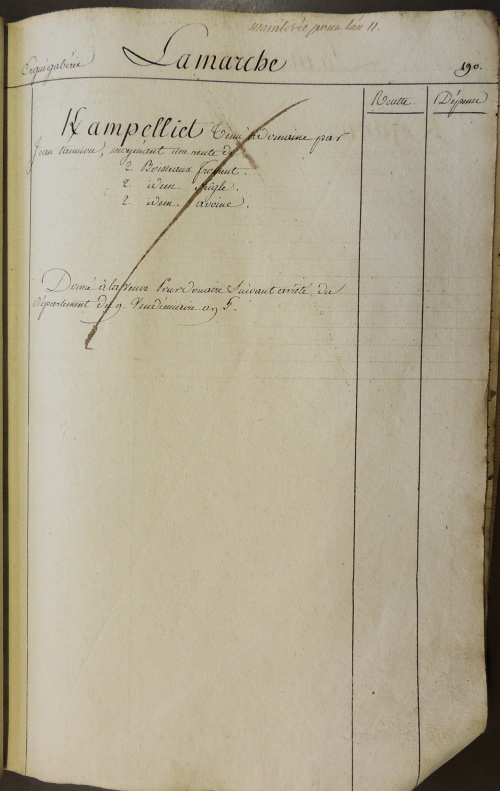 mainlevée pour l'an 11.
Ergué gabéric Lamarche 190.
Recette. Dépense
Kampelliet tenu à domaine par
Jean, moyénant une rente de
2 Boisseaux froment.
2 idem Seigle.
2 idem avoine.
Donné à la veuve pour douaire Suivant arrêté du
Département du 9 Vendémiaire an 5.